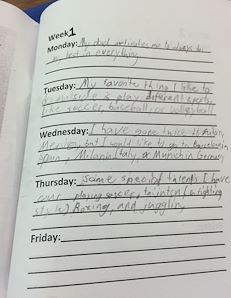 Week 1
Monday: My dad motivates me to always do
my best in everything
Tuesday: My favorite thing I like to
do is play different sports
like soccer, baseball, or volleyball
Wednesday: I have gone twice to
Mexico, but I would like to go to Barcelona,
Spain, Milan, Italy, or Munich in Germany
Thursday: Some special talents I have
are playing soccer, (a fighting
style) Boxing, and juggling
Friday: